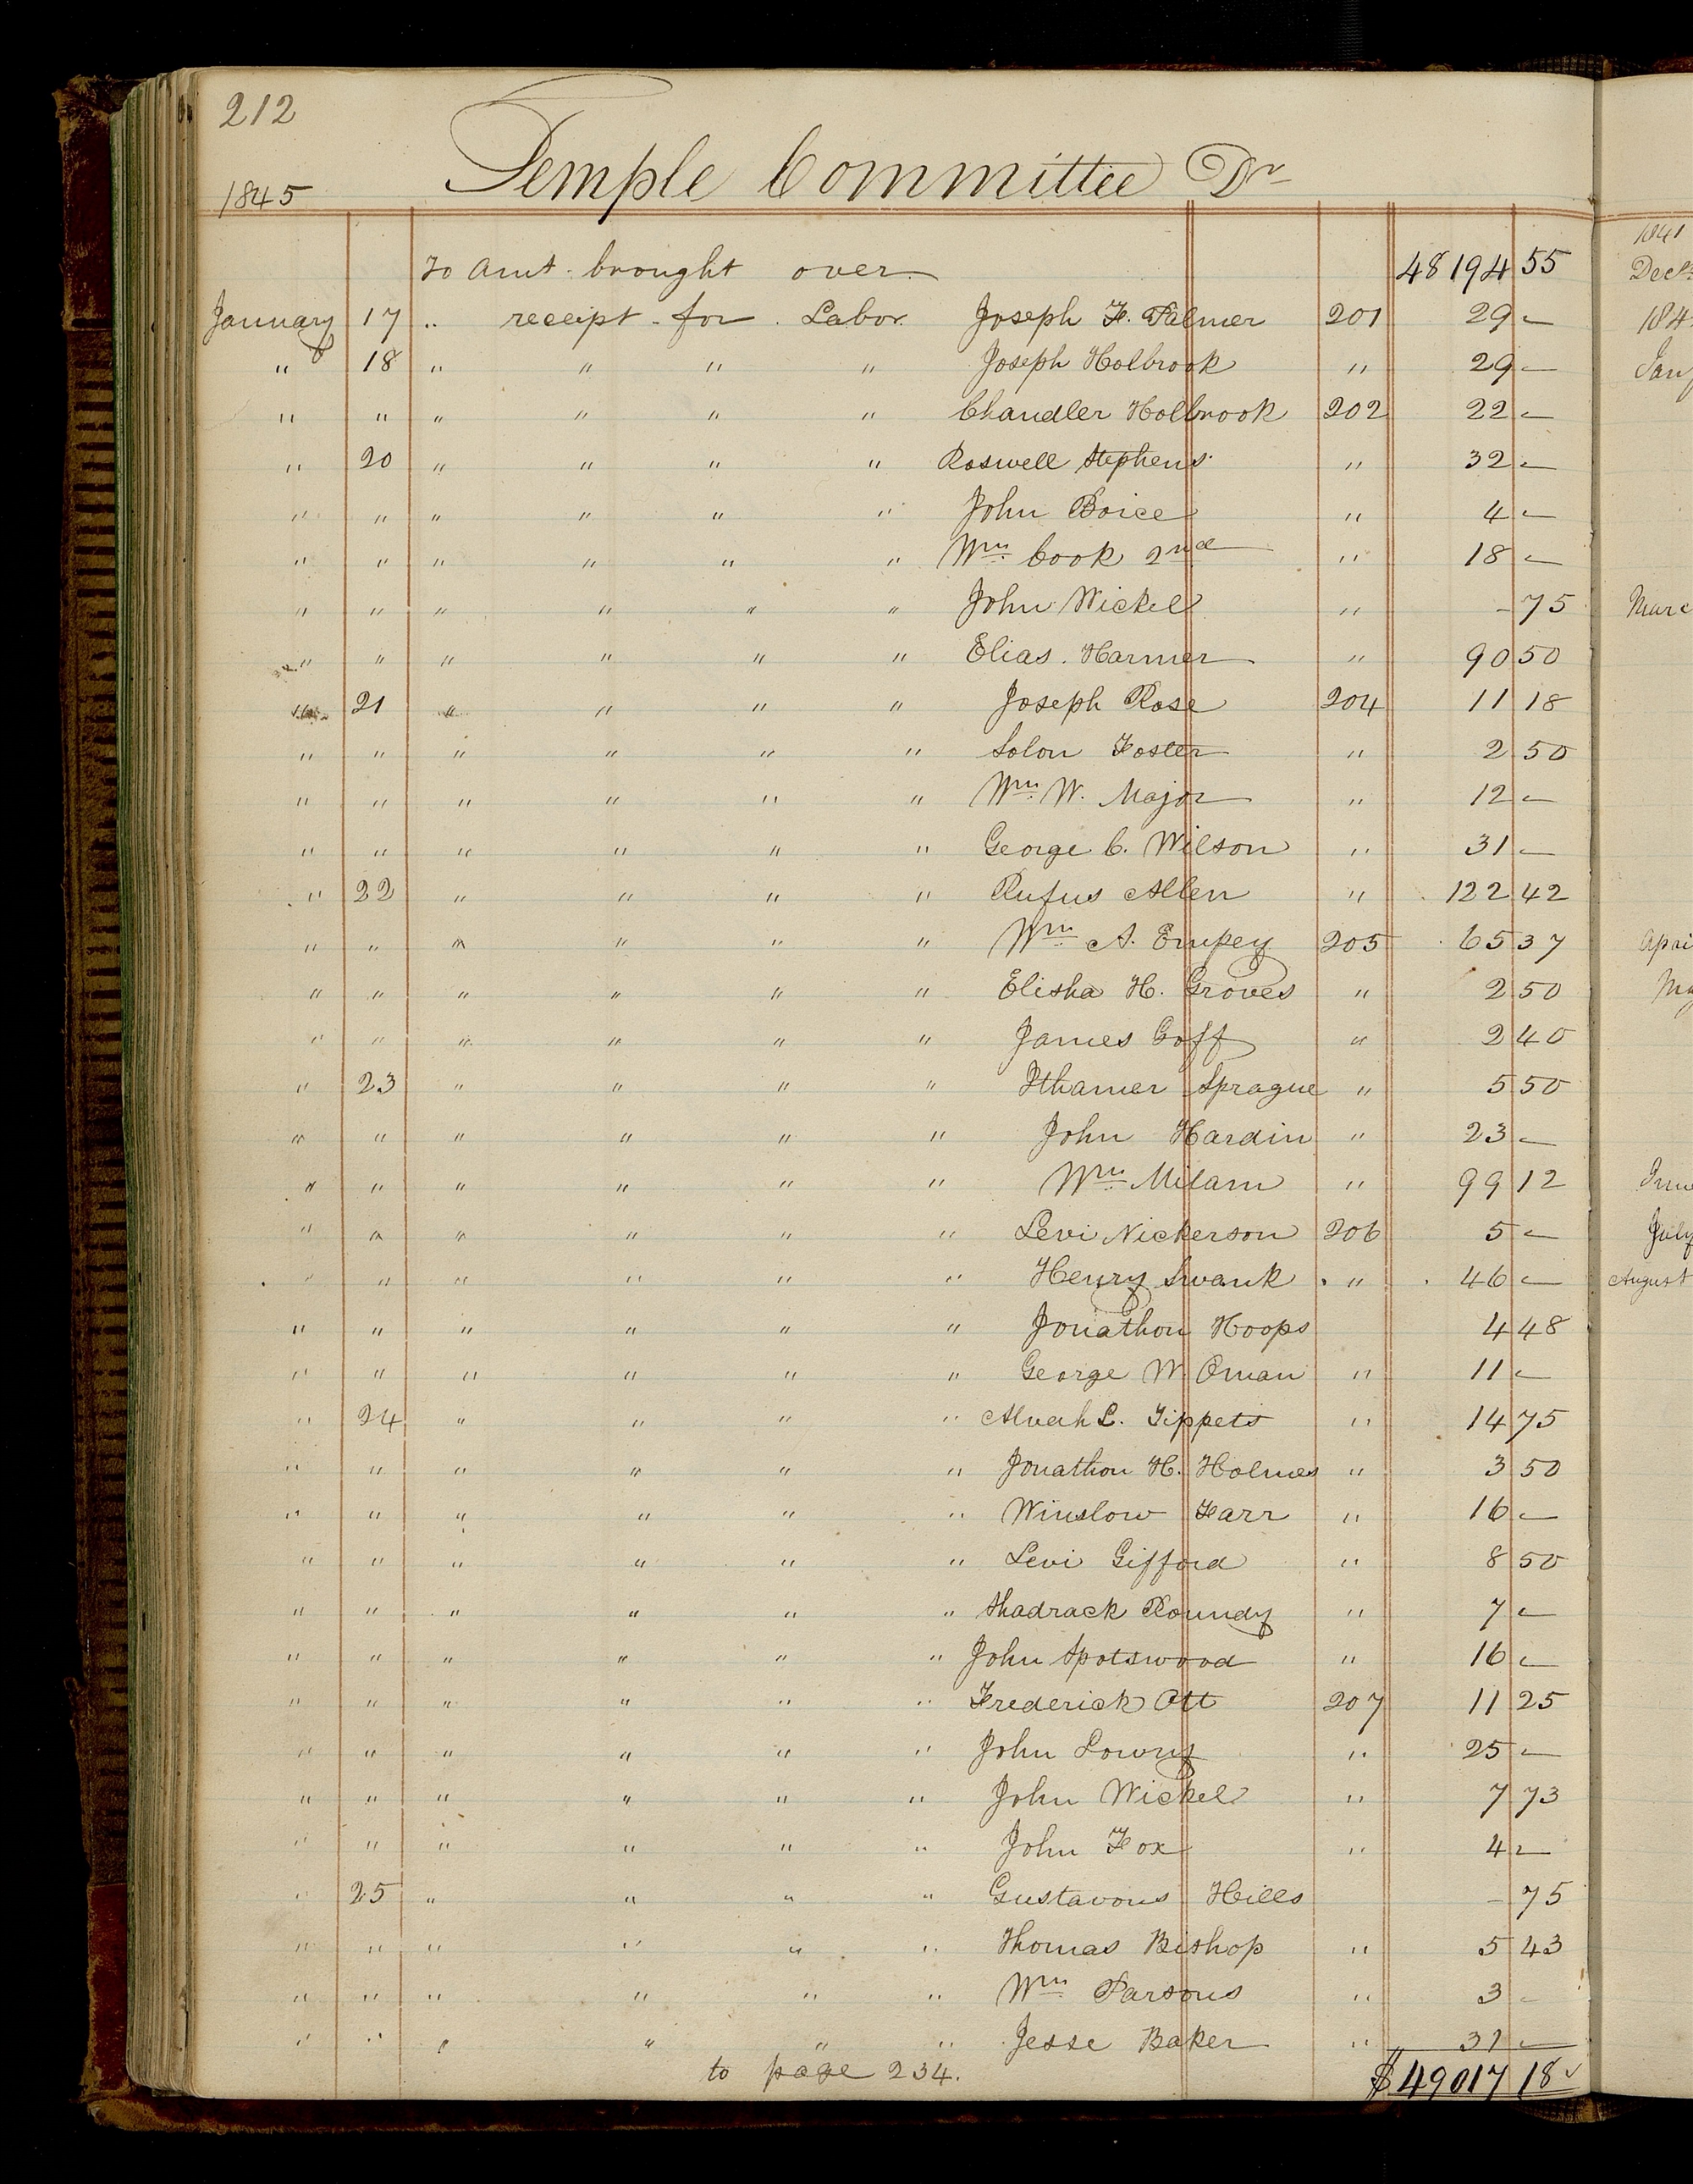 212
Temple Committee Dr
1845
To Amt. brought over 48194 55
January 17 " receipt for Labor Joseph F. Palmer 201 29 —
" 18 " " " " Joseph Holbrook " 29 —
" " " " " " Chandler Holbrook 202 22 —
" 20 " " " " Roswell Stephens " 32 —
" " " " " " John Boice " 4 —
" " " " " " Wm. Cook 2nd " 18 —
" " " " " " John Wickel " - 75
" " " " " " Elias Harmer " 90 50
" 21 " " " " Joseph Rose 204 11 18
" " " " " " Solon Foster " 2 50
" " " " " " Wm. W. Major " 12 —
" " " " " " George C. Wilson " 31 —
" 22 " " " " Rufus Allen " 122 42
" " " " " " Wm. A. Empey 205 65 37
" " " " " " Elisha H. Groves " 2 50
" " " " " " James Goff " 2 40
" 23 " " " " Ithamer Sprague " 5 50
" " " " " " John Hardin " 23 —
" " " " " " Wm. Milam " 99 12
" " " " " " Levi Nickerson 206 5 —
" " " " " " Henry Swank " 46 —
" " " " " " Jonathon Hoops 4 48
" " " " " " George W. Oman " 11 —
" 24 " " " " Alvah L. Tippets " 14 75
" " " " " " Jonathon H. Holmes " 3 50
" " " " " " Winslow Farr " 16 —
" " " " " " Levi Gifford " 8 50
" " " " " " Shadrack Roundy " 7 —
" " " " " " John Spotswood " 16 —
" " " " " " Frederick Ott 207 11 25
" " " " " " John Lowry " 25 —
" " " " " " John Wickel " 7 73
" " " " " " John Fox " 4 —
" 25 " " " " Gustavous Hills - 75
" " " " " " Thomas Bishop " 5 43
" " " " " " Wm. Parsons " 3 -
" " " " " " Jesse Baker " 31 —
to page 234. $49017 18
1841
Decr
184
Jany
Marc
Apri
Ma
June
July
August